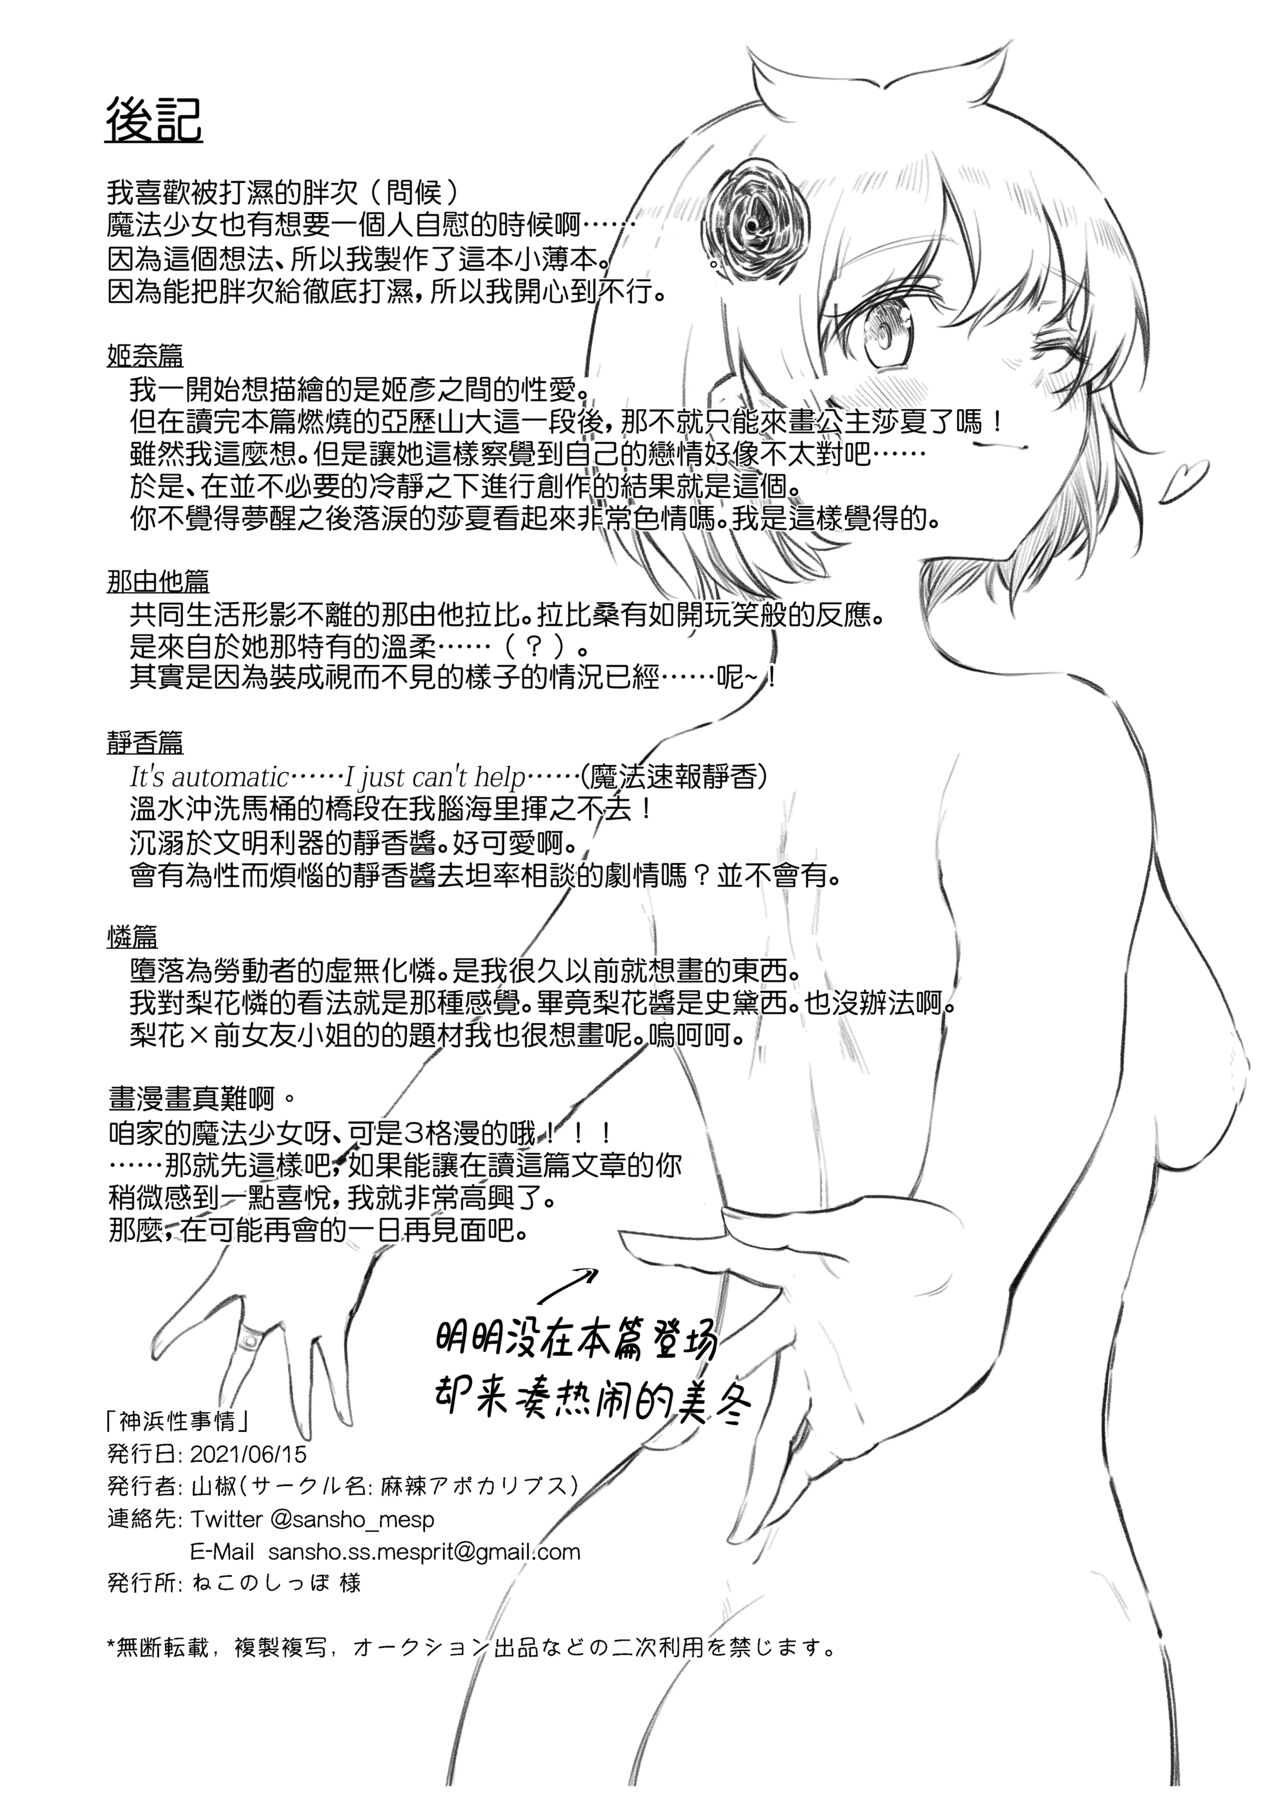 後記
我喜歡被打濕的胖次（問候）
魔法少女也有想要一個人自慰的時候啊……
因為這個想法、所以我製作了這本小薄本。
因為能把胖次給徹底打濕，所以我開心到不行。
姬奈篇
我一開始想描繪的是姬彥之間的性愛。
但在讀完本篇燃燒的亞歷山大這一段後，那不就只能來畫公主莎夏了嗎！
雖然我這麼想。但是讓她這樣察覺到自己的戀情好像不太對吧……
於是、在並不必要的冷靜之下進行創作的結果就是這個。
你不覺得夢醒之後落淚的莎夏看起來非常色情嗎。我是這樣覺得的。
那由他篇
共同生活形影不離的那由他拉比。拉比桑有如開玩笑般的反應。
是來自於她那特有的溫柔……（？）。
其實是因為裝成視而不見的樣子的情況已經……呢~！
靜香篇
It's automatic……I just can't help……(魔法速報靜香)
溫水沖洗馬桶的橋段在我腦海里揮之不去！
沉溺於文明利器的靜香醬。好可愛啊。
會有為性而煩惱的靜香醬去坦率相談的劇情嗎？並不會有。
憐篇
墮落為勞動者的虛無化憐。是我很久以前就想畫的東西。
我對梨花憐的看法就是那種感覺。畢竟梨花醬是史黛西。也沒辦法啊。
梨花×前女友小姐的的題材我也很想畫呢。嗚呵呵。
畫漫畫真難啊。
咱家的魔法少女呀、可是3格漫的哦！！！
……那就先這樣吧，如果能讓在讀這篇文章的你
稍微感到一點喜悅，我就非常高興了。
那麼，在可能再會的一日再見面吧。
明明没在本篇登场
却来凑热闹的美冬
「神浜性事情」
発行日: 2021/06/15
発行者: 山椒(サークル名: 麻辣アポカリプス)
連絡先: Twitter @sansho_mesp
E-Mail sansho.ss.mesprit@gmail.com
発行所: ねこのしっぽ 様
*無断転載，複製複写，オークション出品などの二次利用を禁じます。